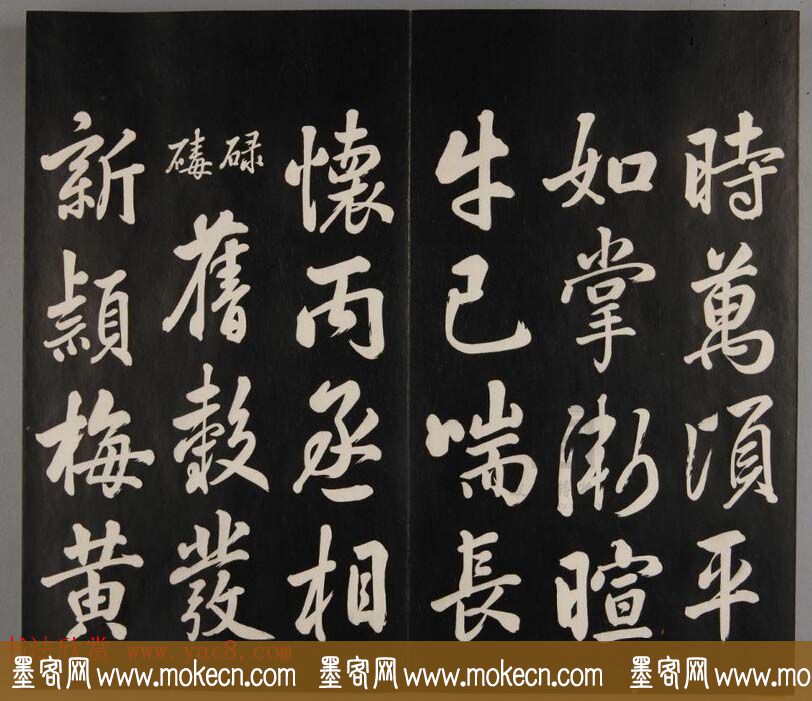 時萬頃平
如掌漸暄
牛已喘長
懷丙丞相
碌
碡
舊穀發
新穎梅黄
书法欣赏 www.yac8.com
墨客网 www.mokecn.com 墨客网 www.mokecn.com 墨客网 www.mokecn.com